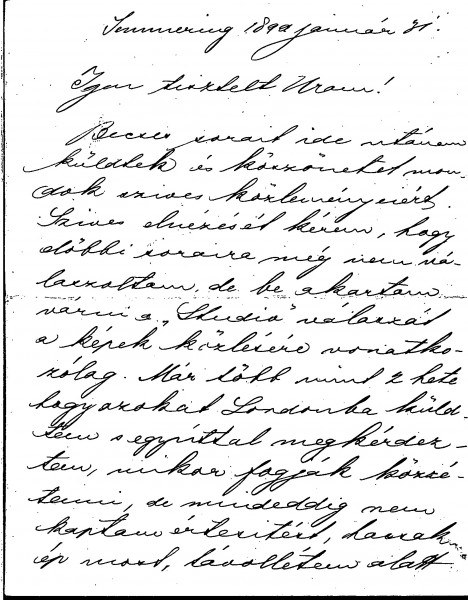 Semmering 1899 január 31.
Igen tisztelt Uram!
Becses sorait ide utánam
küldték és köszönetet mon-
dok szives közleményeiért.
Szives elnézését kérem, hogy
előbbi soraira még nem vá-
laszoltam, de be akartam
várni a „Studio" válaszát
a képek közlésére vonatko-
zólag. Már több mint 2 hete
hogy azokat Londonba küld-
tem s egyúttal megkérdez-
tem, mikor fogják közzé-
tenni, de mindeddig nem
kaptam értesitést, hacsak
ép most, távollétem alatt